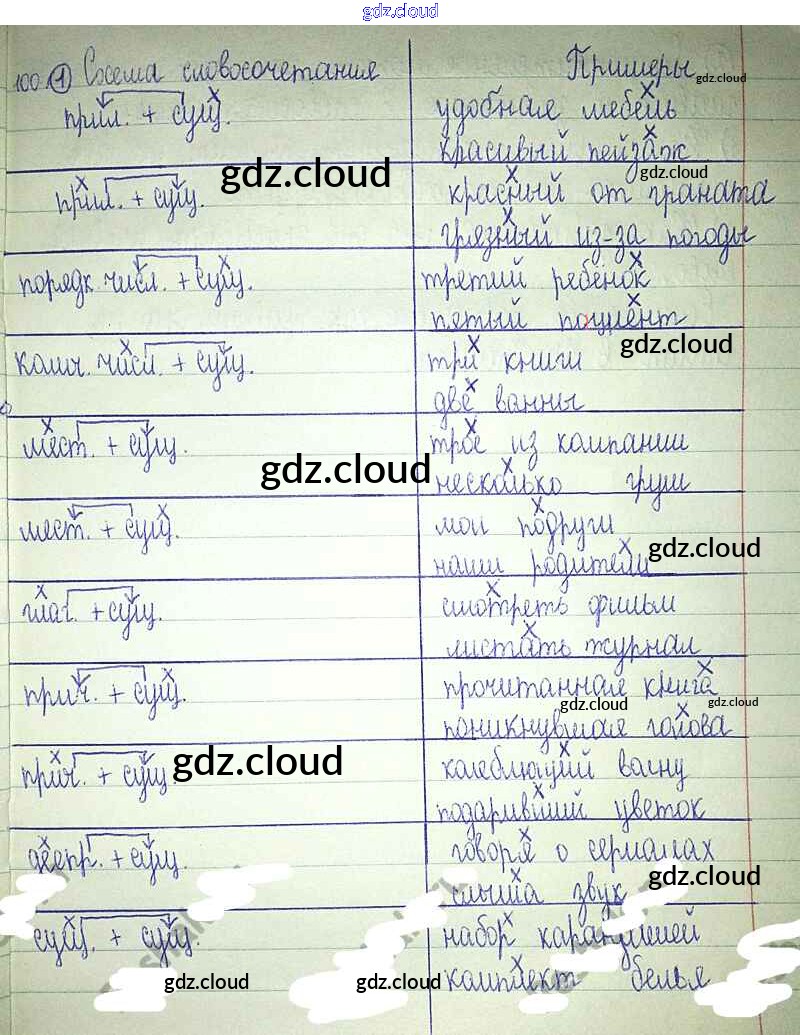 gdz.cloud
100. 1 Схема словосочетания Примеры
gdz.cloud
прил. + сущ. удобная мебель
красивый пейзаж
gdz.cloud
gdz.cloud
прил. + сущ. красный от граната
грязный из-за погоды
порядк. числ. + сущ. третий ребёнок
пятый пациент
gdz.cloud
колич. числ. + сущ. три книги
две ванны
мест. + сущ. трое из компании
gdz.cloud
несколько груш
мест. + сущ. мои подруги
gdz.cloud
наши родители
глаг. + сущ. смотреть фильм
листать журнал
прич. + сущ. прочитанная книга
gdz.cloud gdz.cloud
поникнувшая голова
прич. + сущ. колеблющий волну
gdz.cloud
подаривший цветок
деепр. + сущ. говоря о сериалах
gdz.cloud
слыша звук
сущ. + сущ. набор карандашей
комплект белья
gdz.cloud gdz.cloud gdz.cloud